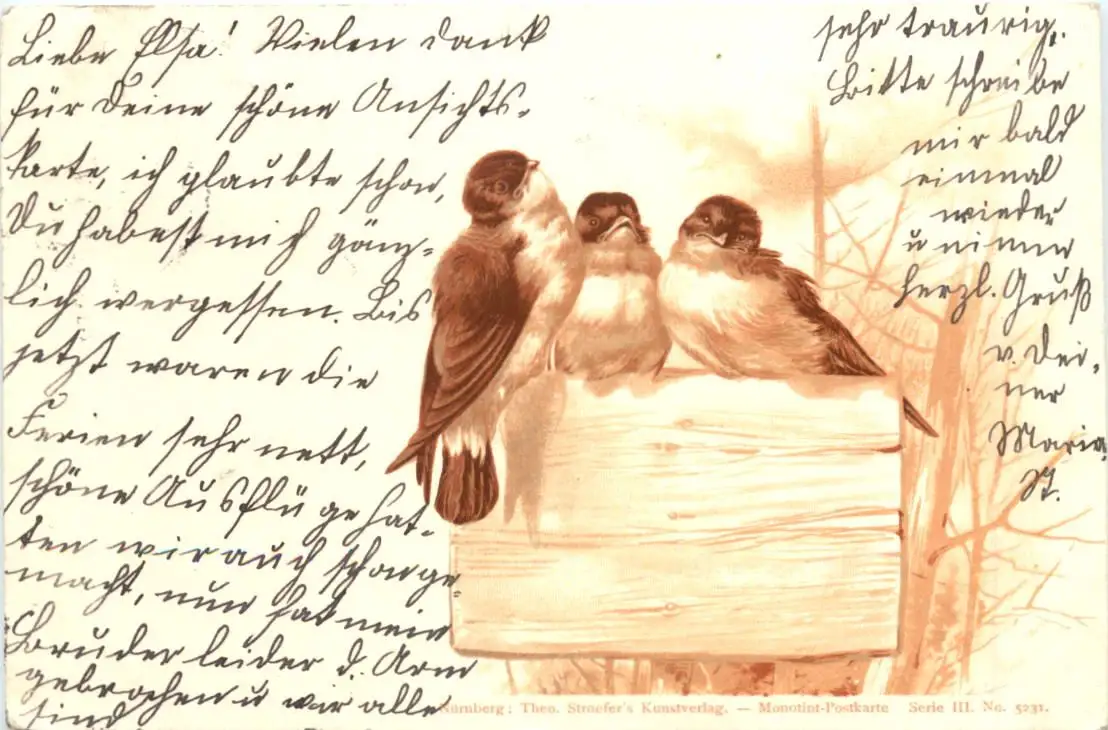 Liebe Elsa! Vielen Dank
für Deine schöne Ansichts-
karte, ich glaubte schon,
Du habest mich gänz-
lich vergessen. Bis
jetzt waren die
Ferien sehr nett,
schöne Ausflüge hat-
ten wir auch schon ge-
macht, nun hat mein
Bruder leider d. Arm
gebrochen u wir alle
sind
sehr traurig.
Bitte schreibe
mir bald
einmal
wieder
u einen
herzl. Gruß
v. Dei-
ner
Maria
St.
Nürnberg; Theo. Stroefer's Kunstverlag. — Monotint-Postkarte Serie III. No. 5231.